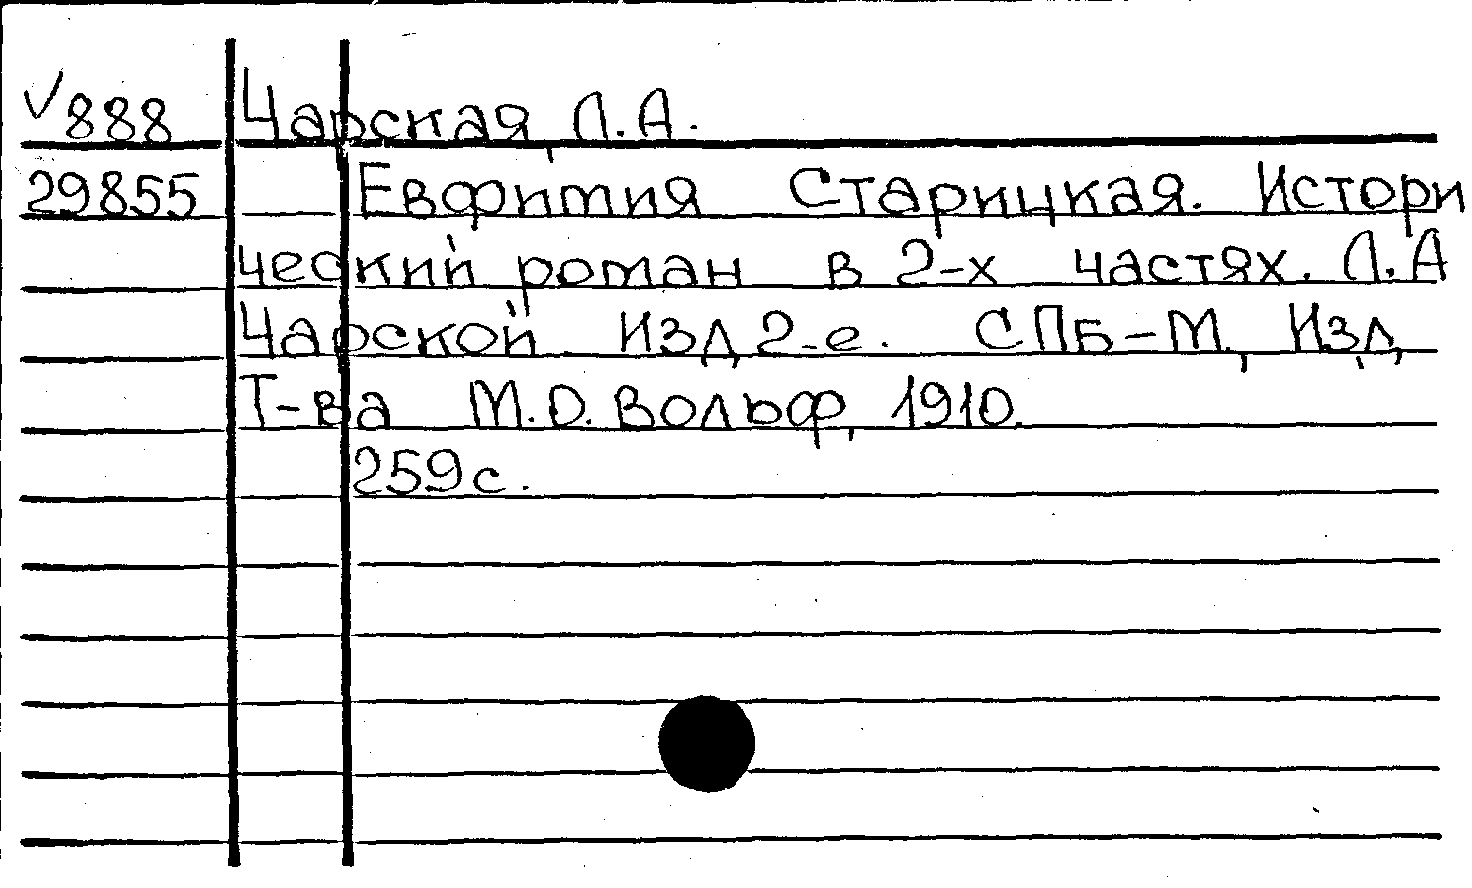 √888 Чарская, Л.А.
29855 Евфития Старицкая. Истори
ческий роман в 2-х частях. Л.А
Чарской. Изд, 2-е. СПБ-М, Изд,
Т-ва М.О. Вольф, 1910.
259с.